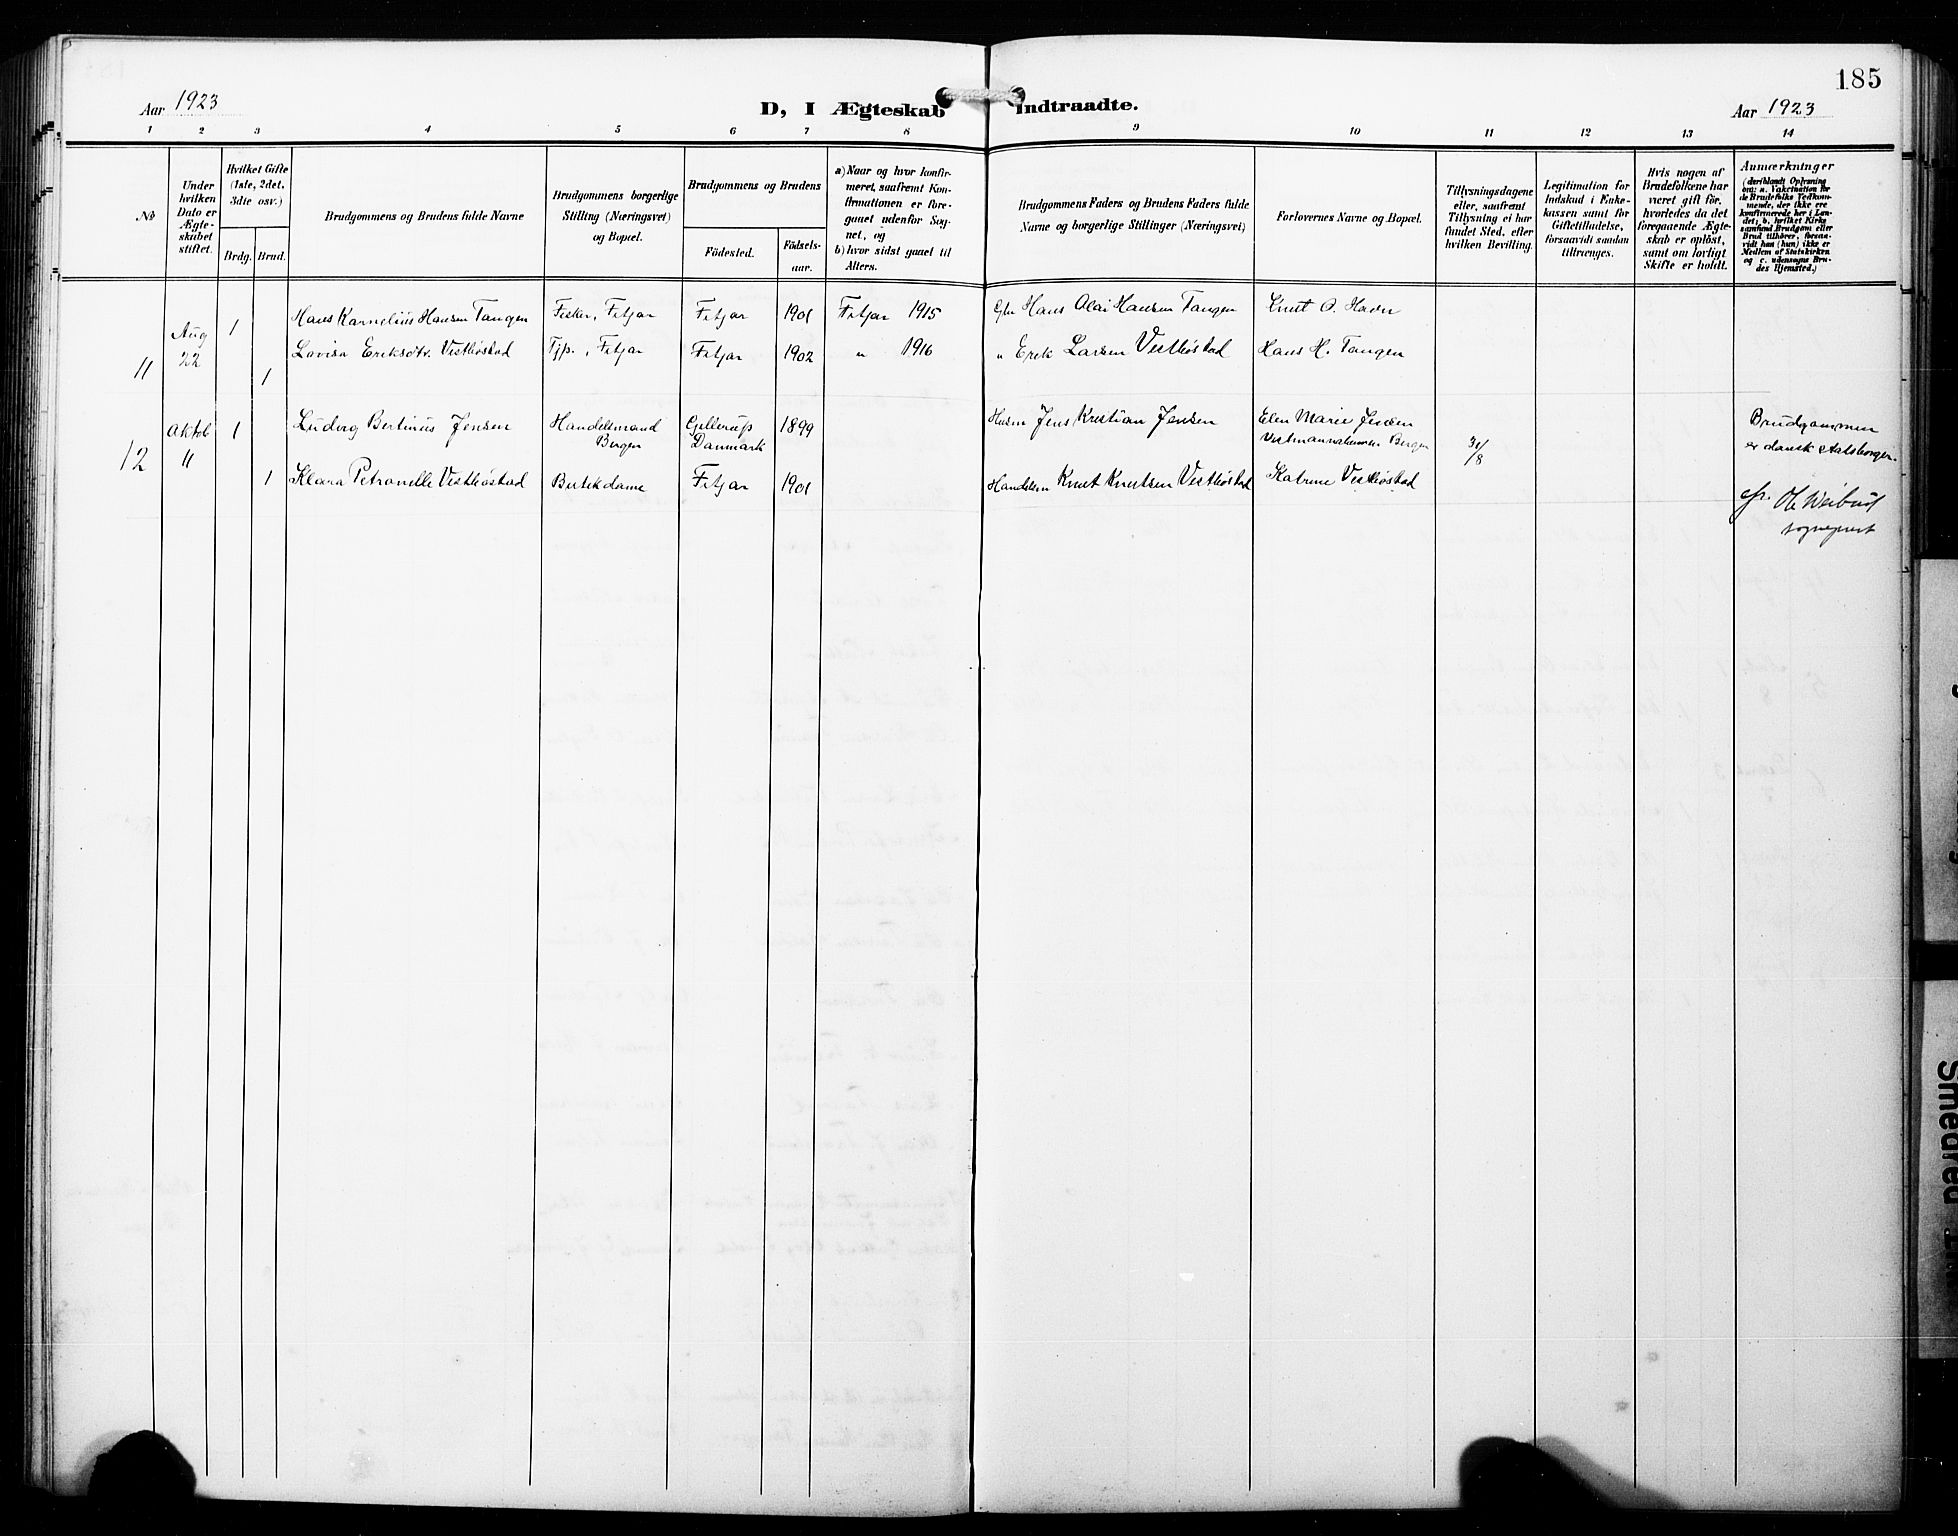 185
Aar 1923
D, I Ægteskab Indtraadte.
Aar 1923
1 2 3 4 5 6 7 8 9 10 11 12 13 14
No
Under hvilken Dato er Ægteskabet stiftet.
Hvilket Gifte (1ste, 2det, 3dte osv.)
Brdg. Brud.
Brudgommens og Brudens fulde Navne
Brudgommens borgerlige Stilling (Næringsvei) og Bopæl.
Brudgommens og Brudens
Födested.
Födselsaar.
a) Naar og hvor konfirmeret, saafremt Konfirmationen er foregaaet udenfor Sognet, og
b) hvor sidst gaaet til Alters.
Brudgommens Faders og Brudens Faders fulde Navne og borgerlige Stillinger (Næringsvei)
Forlovernes Navne og Bopæl.
Tillysningsdagene eller, saafremt Tillysning ei har fundet Sted, efter hvilken Bevilling.
Legitimation for Indskud i Enkekassen samt for Giftetilladelse, forsaavidt saadan tiltrænges.
Hvis nogen af Brudefolkene har været gift för, hvorledes da det foregaaende Ægteskab er oplöst, samt om lovligt Skifte er holdt.
Anmærkninger
(deriblandt Oplysning om: a. Vakcination for de Brudefolks Vedkommende, der ikke ere konfirmerede her i Landet; b. hvilket Kirkesamfund Brudgom eller Brud tilhörer, forsaavidt han (hun) ikke er Medlem af Statskirken og c. udensogns Brudes Hjemsted.)
11 Aug 22
1 Hans Kornelius Hansen Tangen Fisker, Fitjar Fitjar 1901 Fitjar 1915 Gbr Hans Olai Hansen Tangen Knut O. Havn
1 Lovisa Eriksdtr. Vestbøstad Tjp., Fitjar Fitjar 1902 " 1916 " Erik Larsen Vestbøstad Hans H. Tangen
12 Oktob 11
1 Ludvig Bertinus Jensen Handelsmand Bergen Gjellerup Danmark 1899 Husm Jens Kristian Jensen Elen Marie Jensen Bergen 31/8 Brudgommen er dansk statsborger.
1 Klara Petronelle Vestbøstad Butikdame Fitjar 1901 Handelsm Knut Knutsen Vestbøstad Katrine Vestbøstad
sogneprest
Smedred